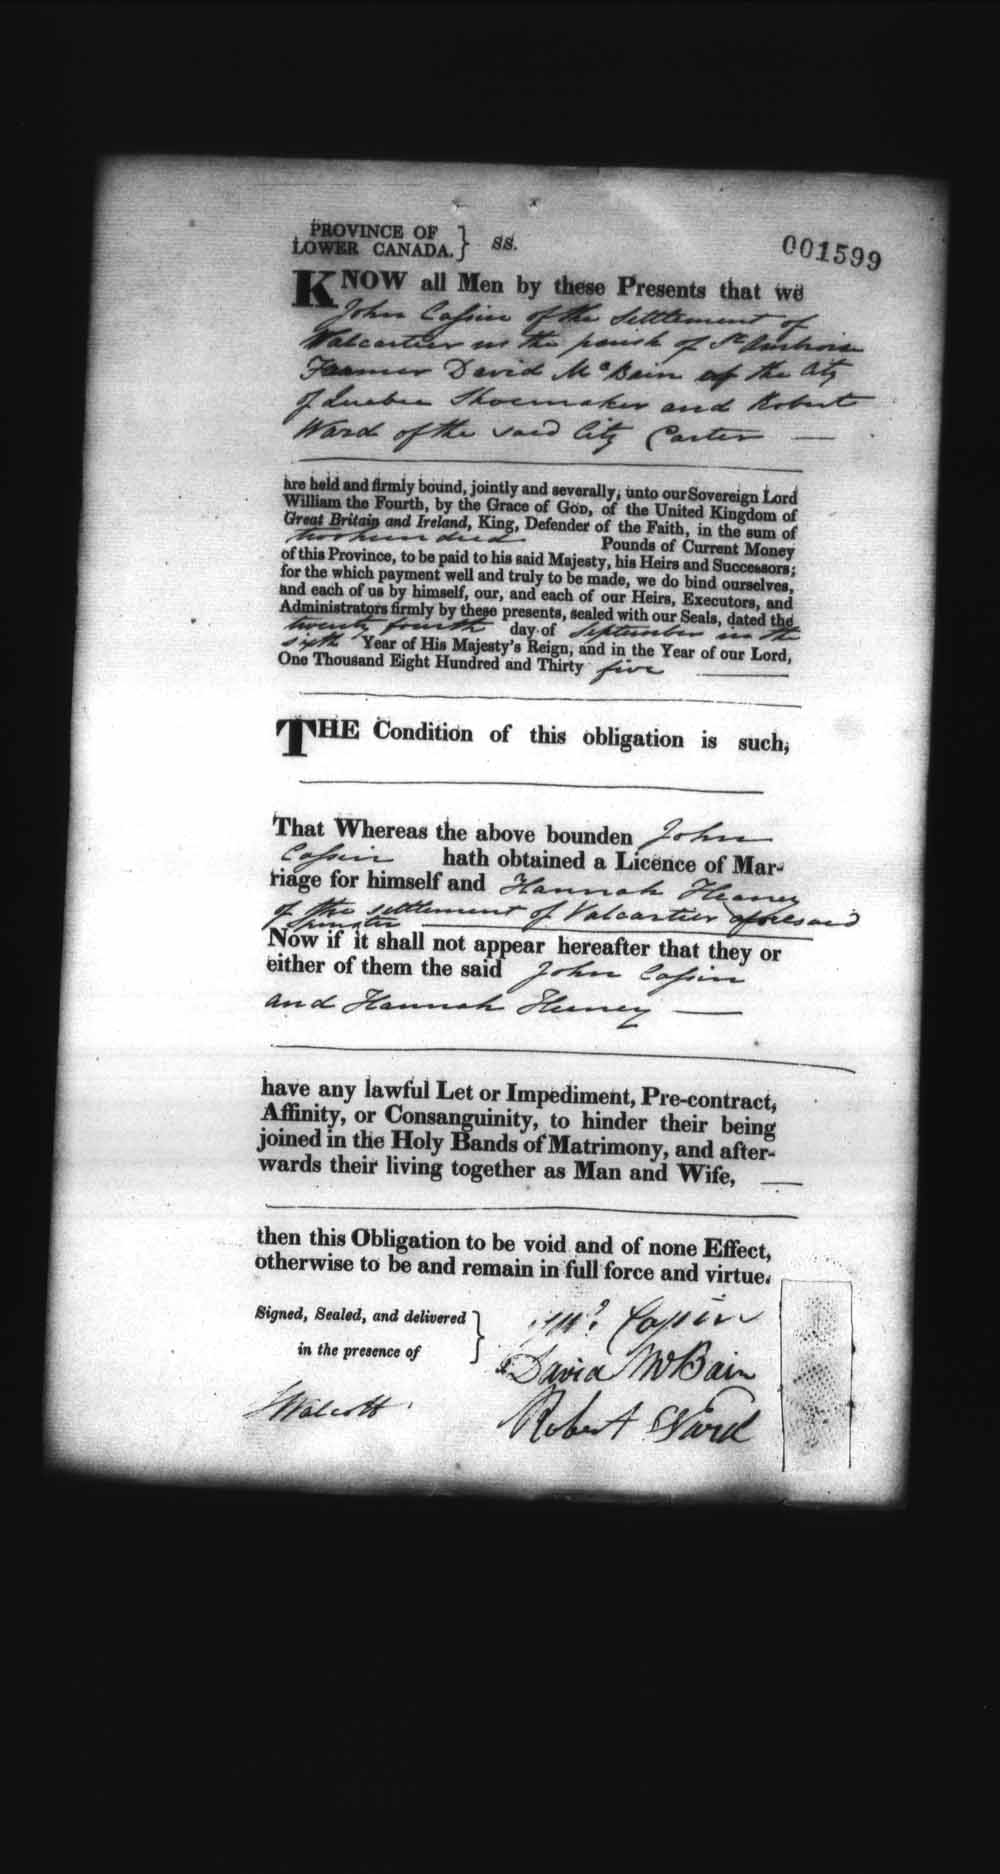 PROVINCE OF
LOWER CANADA. } ss.
001599
KNOW all Men by these Presents that we
John Cassin of the Settlement of
Valcartier in the parish of St Ambroise
Farmer David McBain of the City
of Quebec Shoemaker and Robert
Ward of the said City Carter —
are held and firmly bound, jointly and severally, unto our Sovereign Lord
William the Fourth, by the Grace of GOD, of the United Kingdom of
Great Britain and Ireland, King, Defender of the Faith, in the sum of
two hundred Pounds of Current Money
of this Province, to be paid to his said Majesty, his Heirs and Successors;
for the which payment well and truly to be made, we do bind ourselves,
and each of us by himself, our, and each of our Heirs, Executors, and
Administrators firmly by these presents, sealed with our Seals, dated the
twenty fourth day of September in the
sixth Year of His Majesty's Reign, and in the Year of our Lord,
One Thousand Eight Hundred and Thirty five
THE Condition of this obligation is such,
That Whereas the above bounden John
Cassin hath obtained a Licence of Mar-
riage for himself and Hannah Heaney
of the settlement of Valcartier aforesaid
Spinster
Now if it shall not appear hereafter that they or
either of them the said John Cassin
and Hannah Heeney —
have any lawful Let or Impediment, Pre-contract,
Affinity, or Consanguinity, to hinder their being
joined in the Holy Bands of Matrimony, and after-
wards their living together as Man and Wife, —
then this Obligation to be void and of none Effect,
otherwise to be and remain in full force and virtue.
Signed, Sealed, and delivered }
in the presence of
Cassin
David McBain
Walcott
Robert Ward